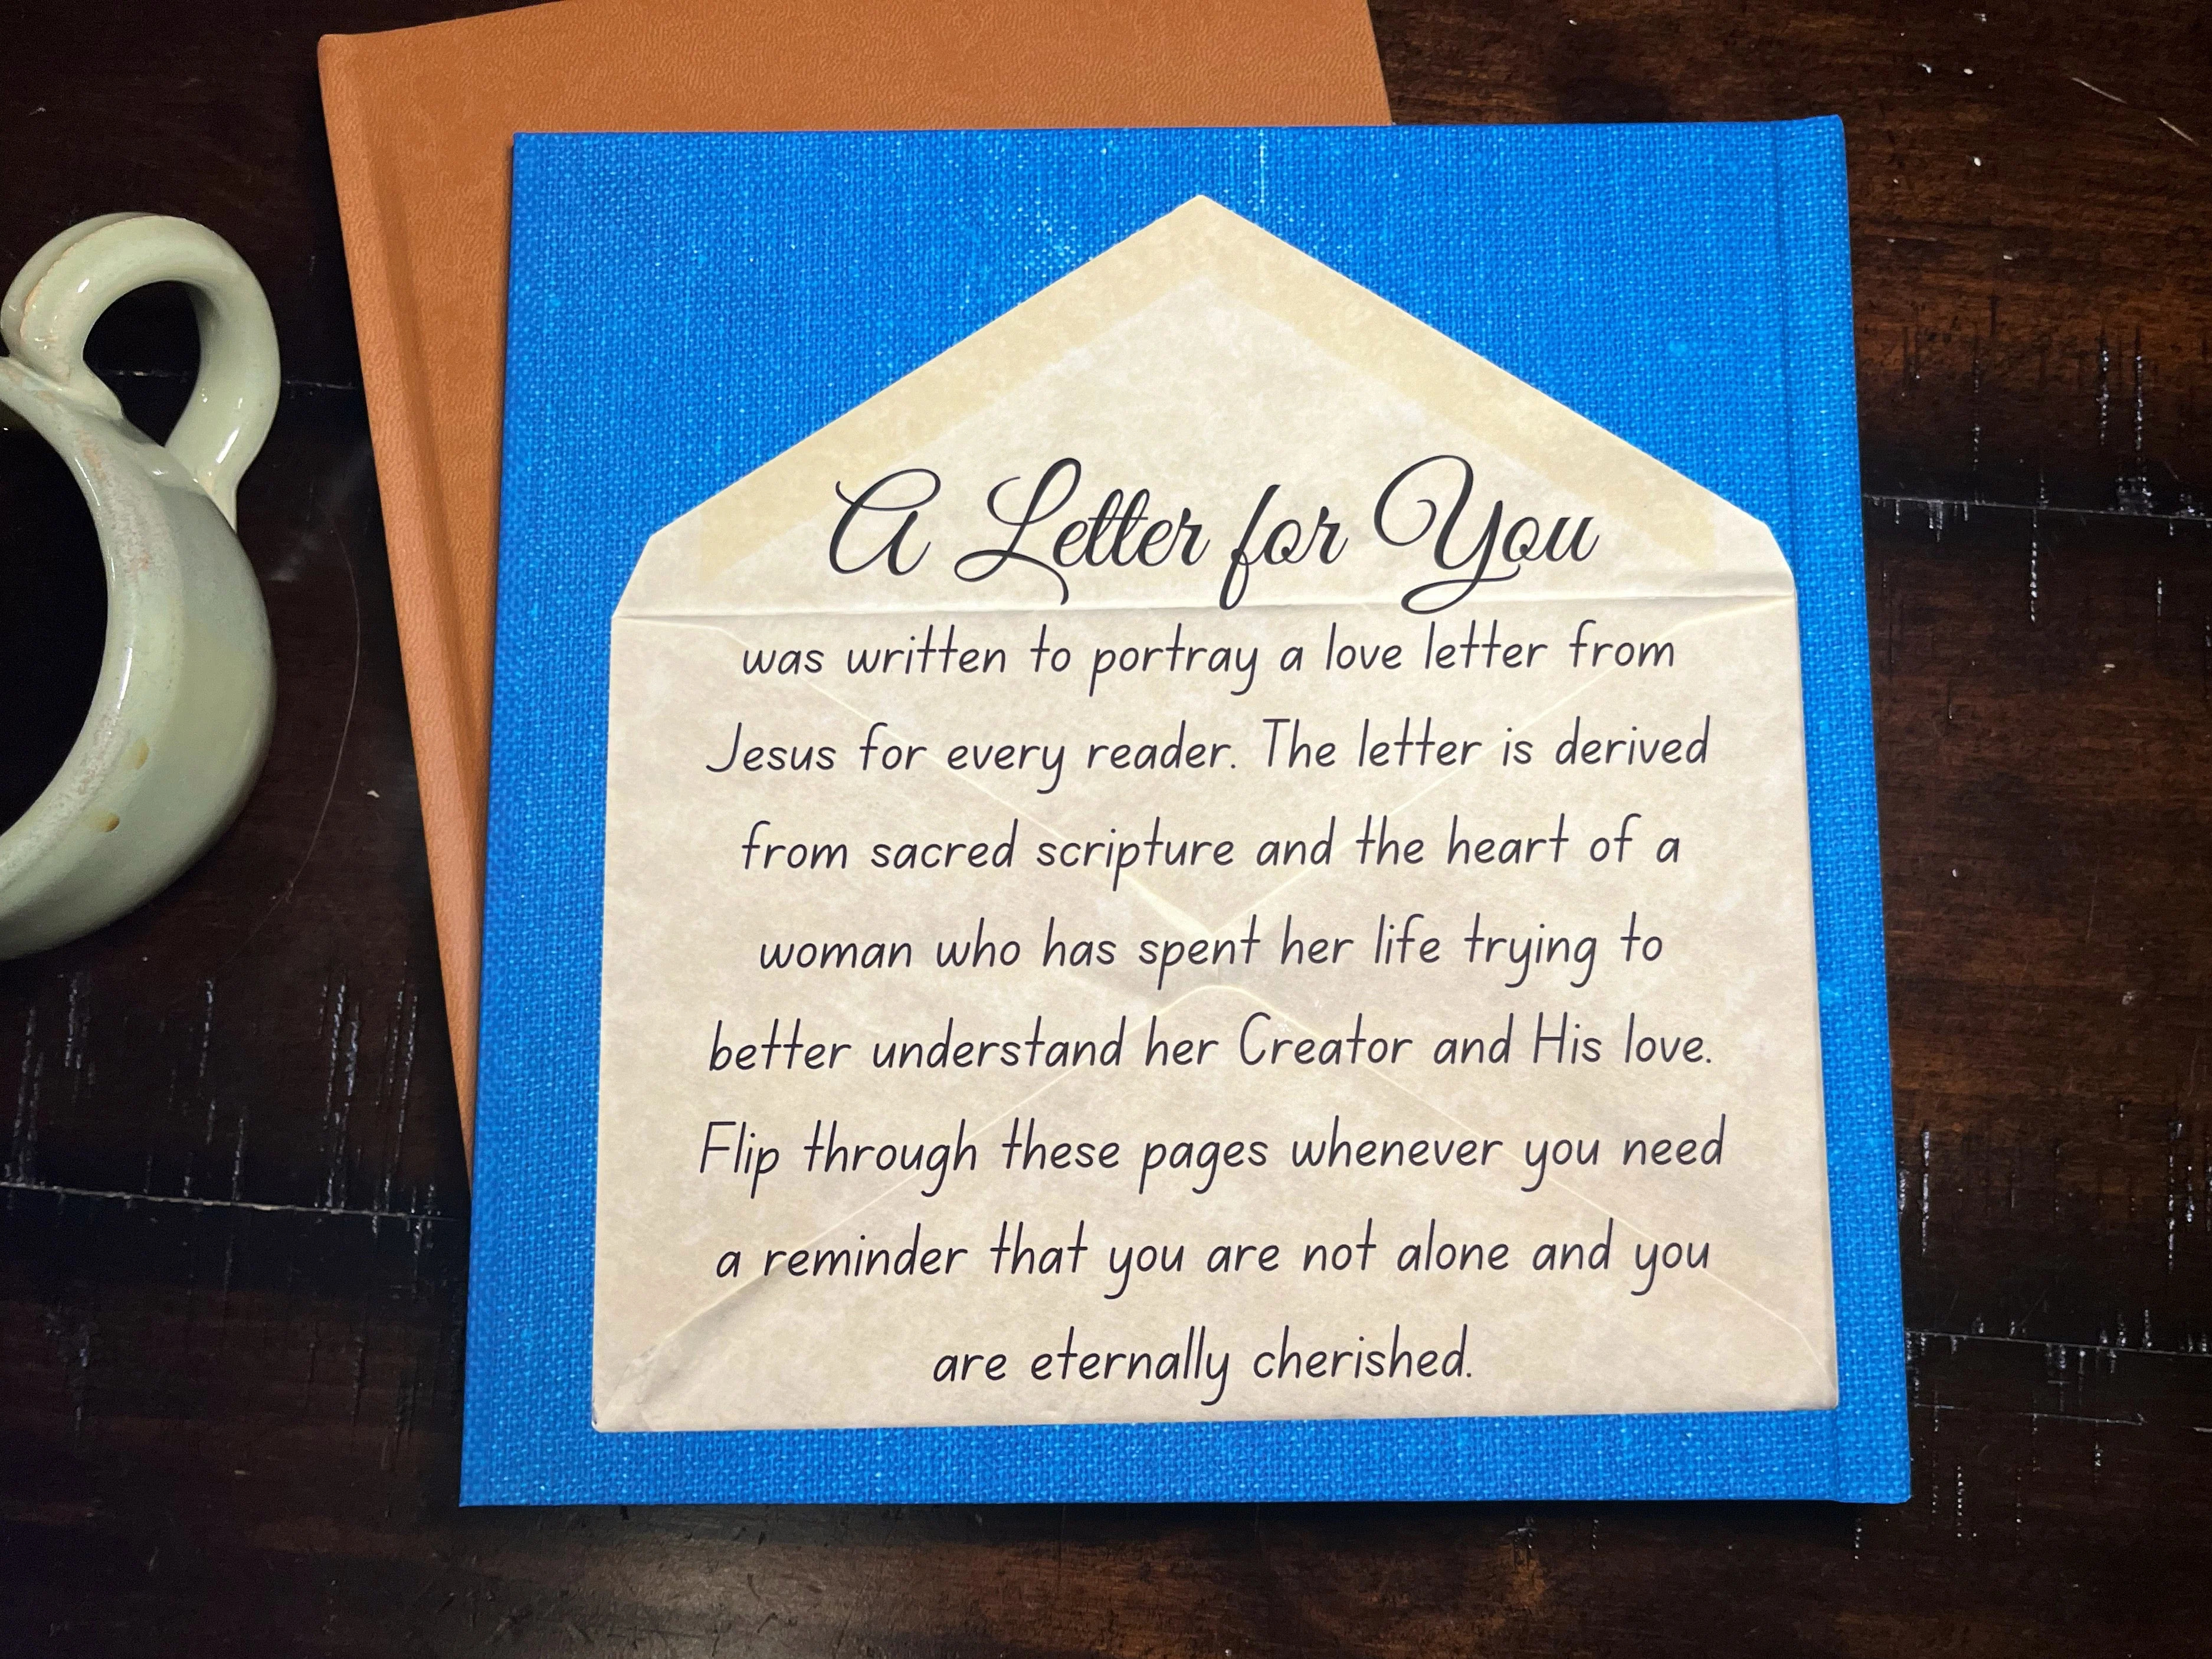 A Letter for You
was written to portray a love letter from
Jesus for every reader. The letter is derived
from sacred scripture and the heart of a
woman who has spent her life trying to
better understand her Creator and His love.
Flip through these pages whenever you need
a reminder that you are not alone and you
are eternally cherished.